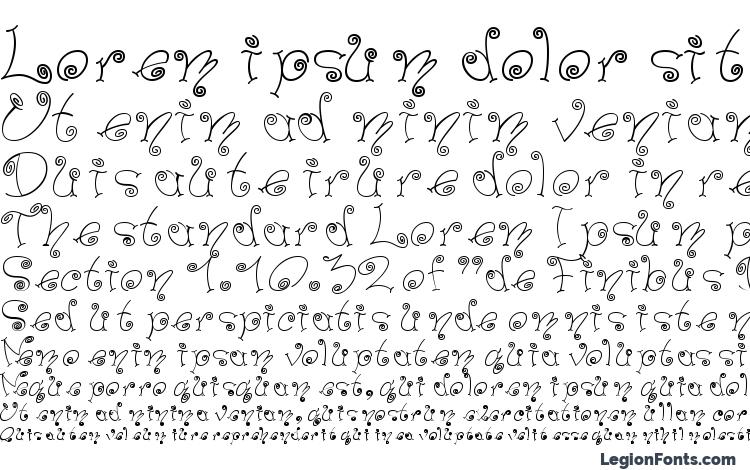 Lorem ipsum dolor sit
Ut enim ad minim venian
Duis aute irure dolor in re
The standard Lorem Ipsum p
Section 1.10.32 of "de Finibus
Sed ut perspiciatis unde omnis iste n
Nemo enim ipsam voluptatem quia voluptas si
Neque porro quisquam est, qui dolorem ipsum quia dol
Ut enim ad minima veniam, quis nostrum exercitationem ullam cor
Quis autem vel eum iure reprehenderit qui in ea voluptate velit esse quam nihil molest
LegionFonts.com